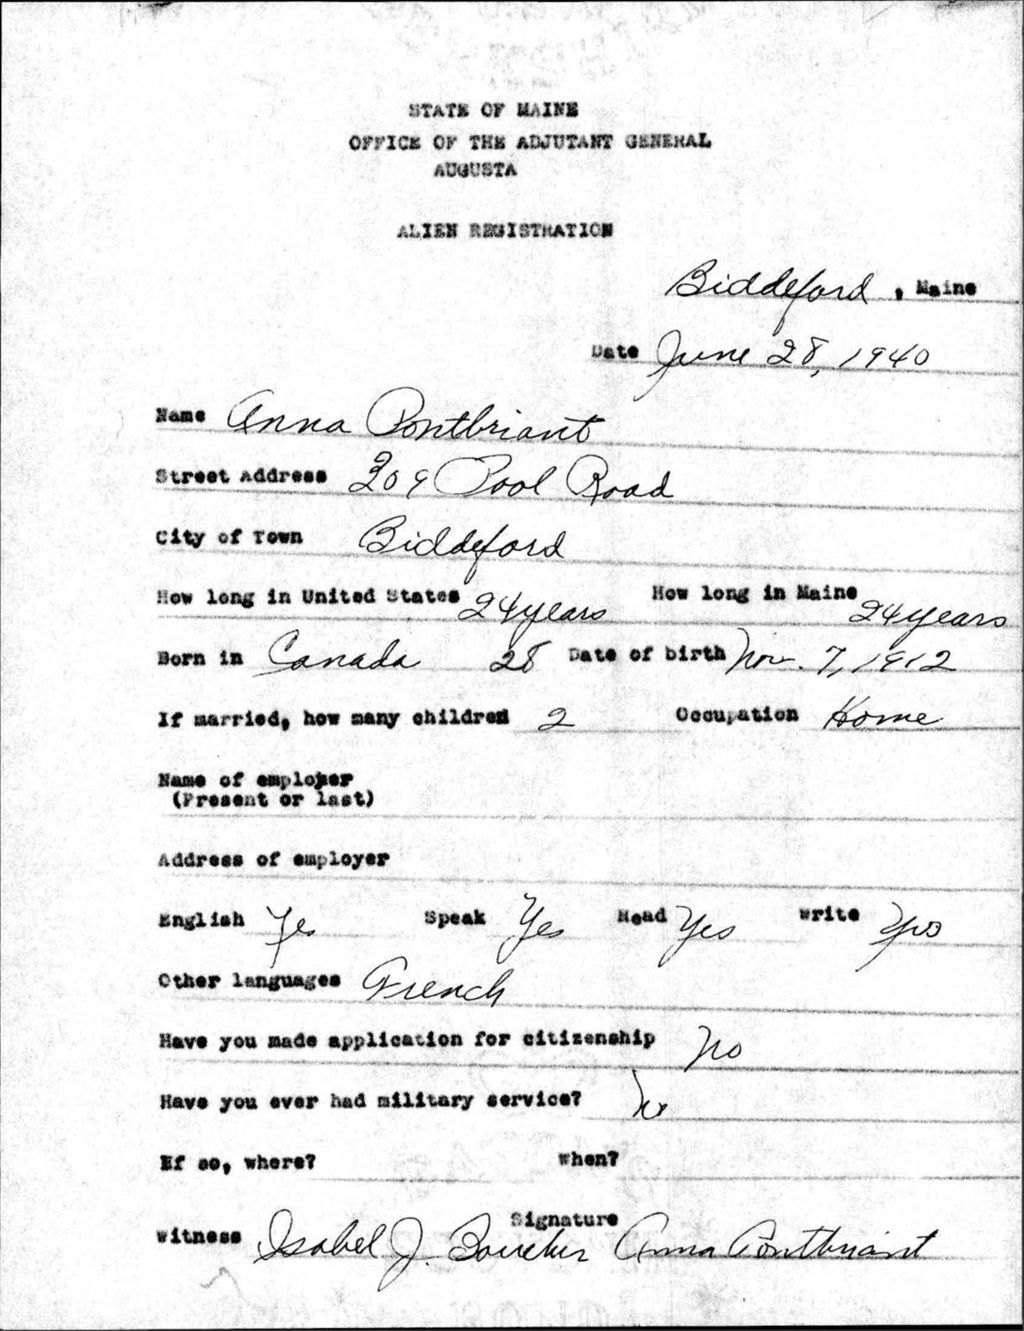 STATE OF MAINE
OFFICE OF THE ADJUTANT GENERAL
AUGUSTA
ALIEN REGISTRATION
Biddeford, Maine
Date June 28, 1940
Name Anna Pontbriant
Street Address 309 Pool Road
City of Town Biddeford
How long in United States 24 years How long in Maine 24 years
Born in Canada 28 Date of birth Nov. 7, 1912
If married, how many children 2 Occupation Home
Name of employer
(Present or last)
Address of employer
English Yes Speak Yes Read Yes Write Yes
Other languages French
Have you made application for citizenship No
Have you ever had military service? No
If so, where? When?
Signature
Witness Isabel J. Boucher Anna Pontbriant